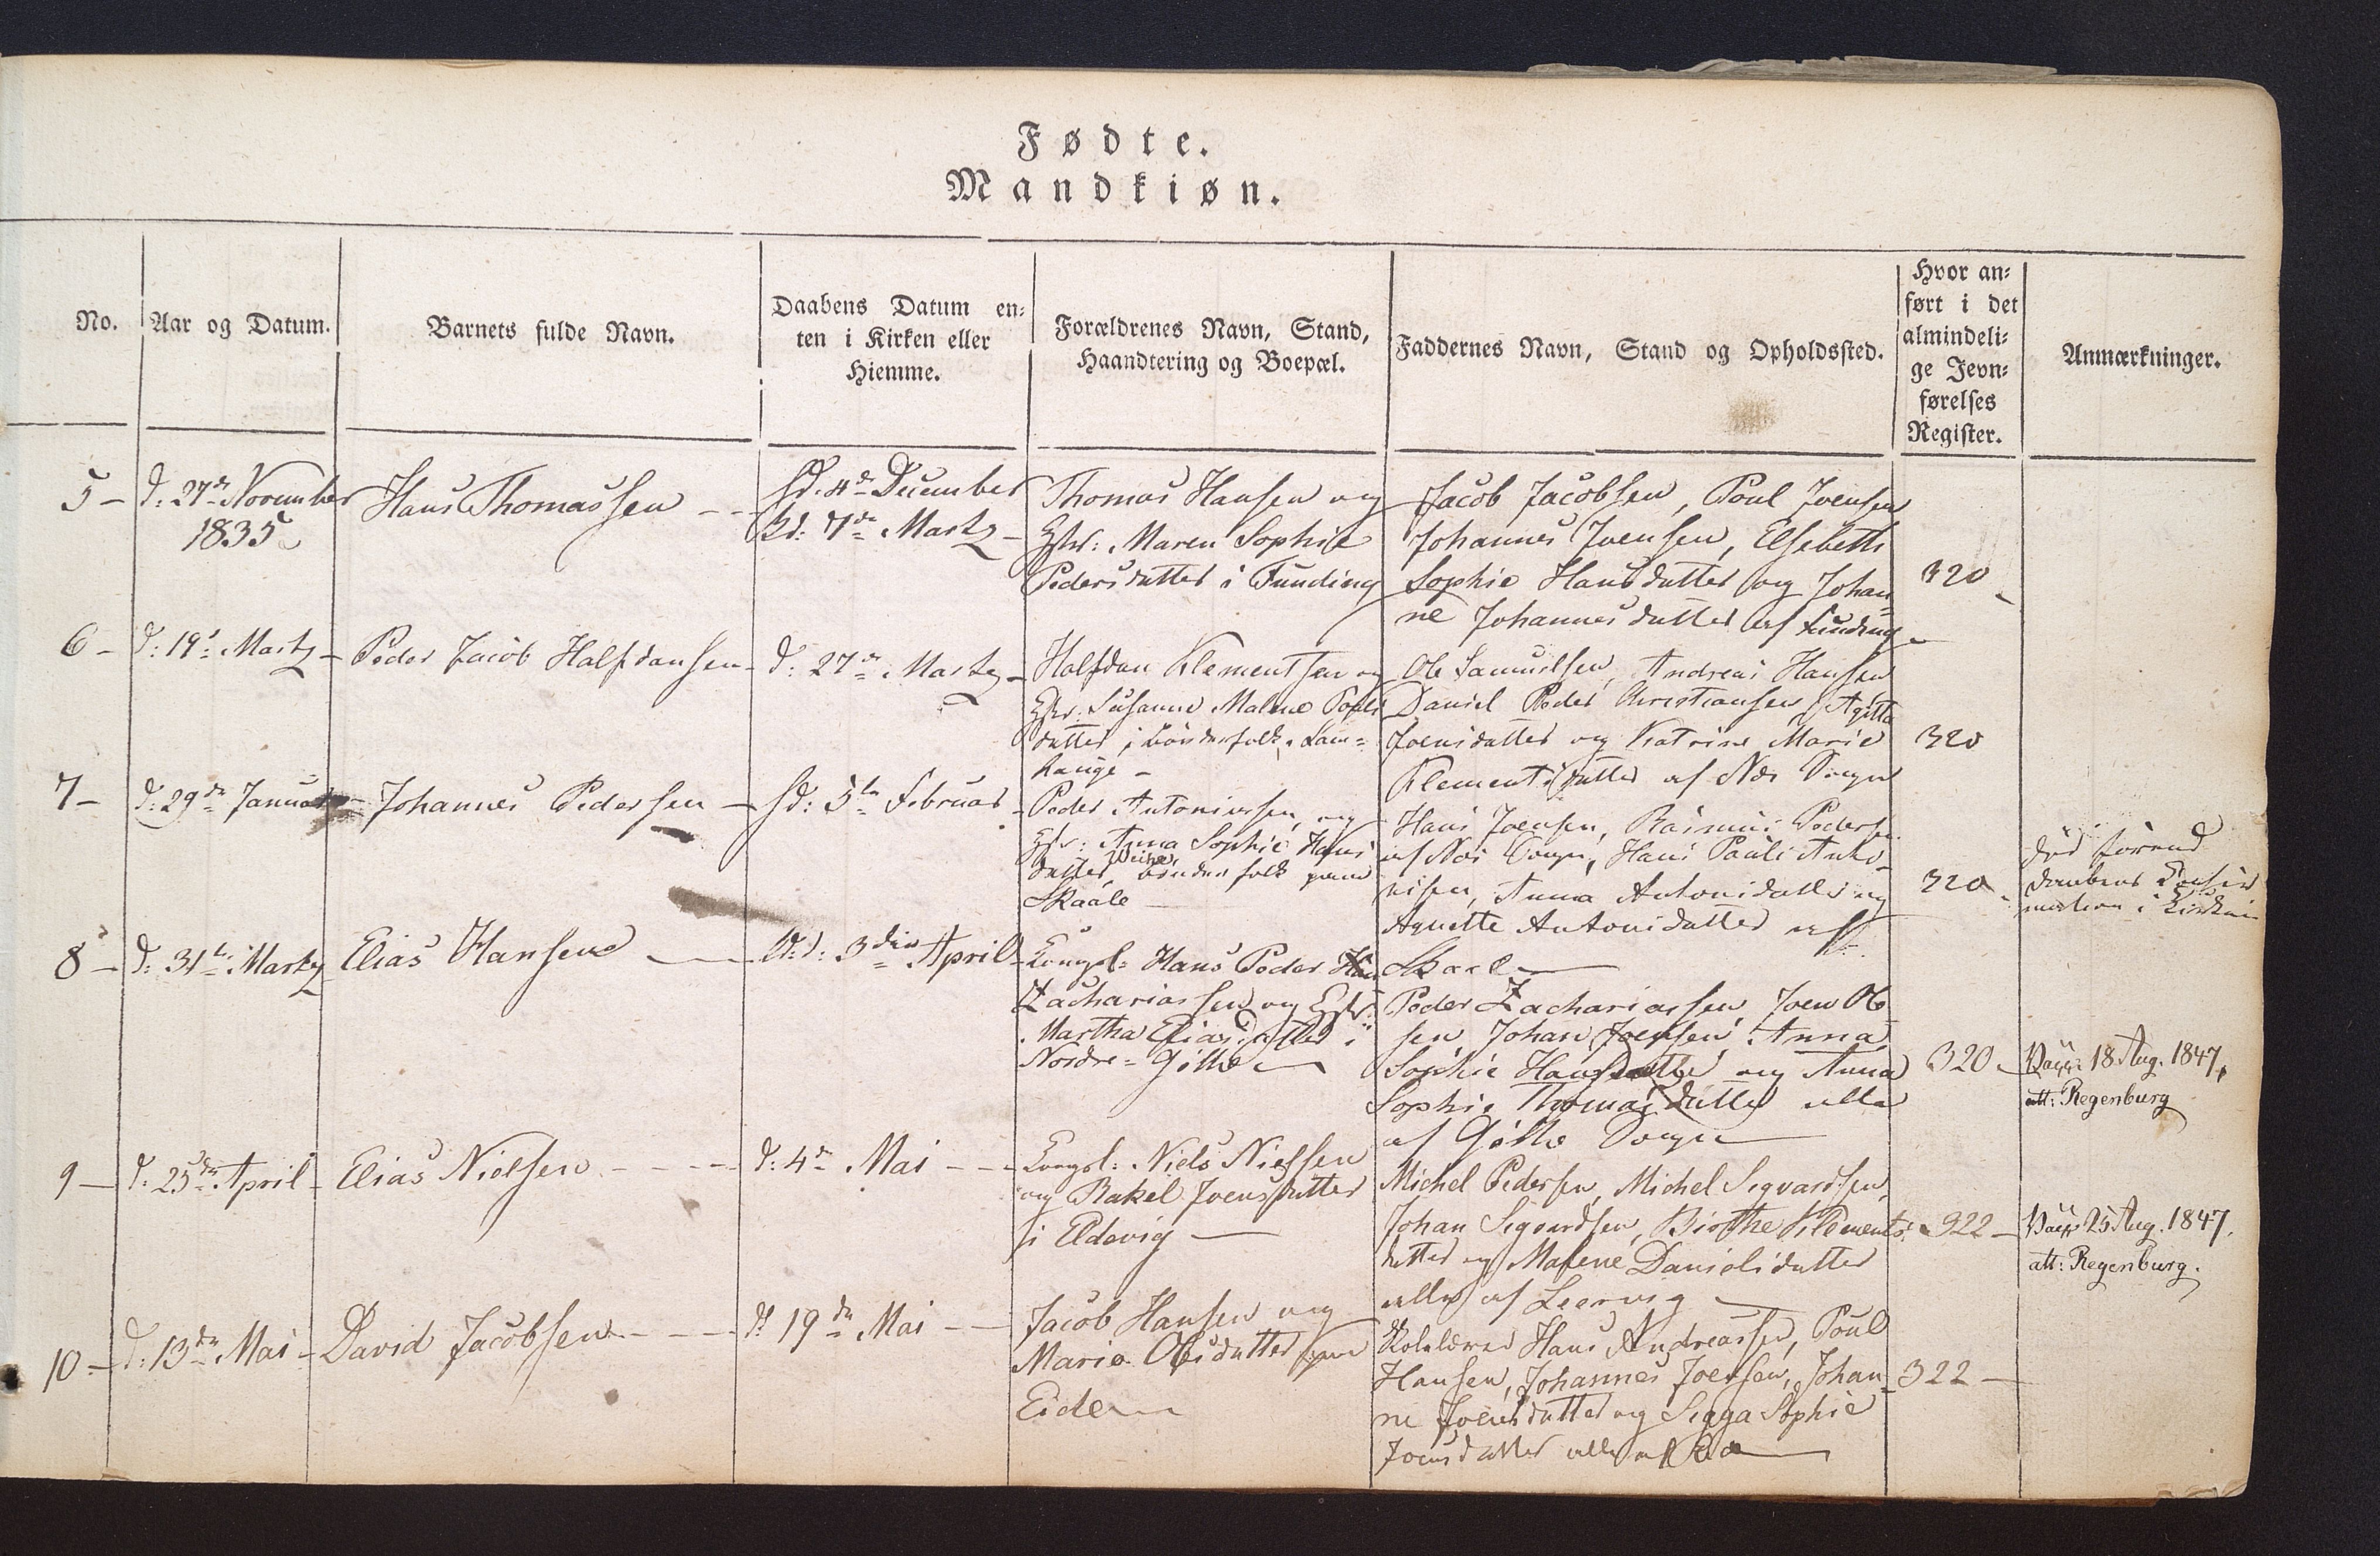 Fødte.
Mandkiøn.
No.
Aar og Datum.
Barnets fulde Navn.
Daabens Datum en-
ten i Kirken eller
Hiemme.
Forældrenes Navn, Stand,
Haandtering og Boepæl.
Faddernes Navn, Stand og Opholdssted.
Hvor an-
ført i det
almindeli-
ge Jevn-
førelses
Register.
Anmærkninger.
5 -
d: 27de November
1835
Hans Thomassen
Hd. 4de December
Kd: 7de Martz
Thomas Hansen og
Hstr: Maren Sophie
Pedersdatter i Funding
Jacob Jacobsen, Poul Joensen
Johannes Joensen, Elsebeth
Sophie Hansdatter og Johan-
ne Johannesdatter af Funding
320
6 -
d: 19de Martz
Peder Jacob Halfdansen
d: 27de Martz
Halfdan Klementsen og
Hstr: Susanne Malene Pouls
datter, bønderfolk, Lam-
hauge -
Ole Samuelsen, Andreas Hansen
Daniel Peder Christiansen, Agitta
Joensdatter og Katrine Marie
Klementsdatter af Næs Sogn
320
7 -
d: 29de Januar
Johannes Pedersen
Hd: 5te Februar
Peder Antoniussen, og
Hstr: Anna Sophie Hans
datter, bønderfolk paa
Skaale
Hans Joensen, Rasmus Pedersen
af Næs Sogn, Hans Pauli Anto-
nisen, Anna Antonidatter og
Agnette Antonidatter af
Skaale
320
død førend
Daabens Confir
mation i Kirken
8 -
d: 31te Martz
Elias Hansen
d: 3die April
Ungel: Hans Peder
Zachariassen og Hstr:
Martha Eliasdatter i
Nordre-Gøthe
Peder Zachariassen, Joen Ole
sen, Johan Joensen, Anna
Sophie Hansdatter og Anna
Sophie Thomasdatter alle
af Gøthe Sogn
320
Vacc: 18 Aug. 1847,
att: Regenburg
9 -
d: 25de April
Elias Nielsen
d: 4de Mai
Ungel: Niels Nielsen
og Rakel Joensdatter
i Eldevig
Michel Pedersen, Michel Sigvardsen,
Johan Sigvardsen, Birthe Klements-
datter og Malene Danielsdatter
alle af Leervig
322
Vacc: 25 Aug. 1847.
att: Regenburg.
10 -
d: 13de Mai
David Jacobsen
d: 19de Mai
Jacob Hansen og
Maria Olesdatter paa
Eide
Hans Andreassen, Poul
Hansen, Johannes Joensen, Johan-
ne Joensdatter og Sigga Sophie
Joensdatter alle af
322